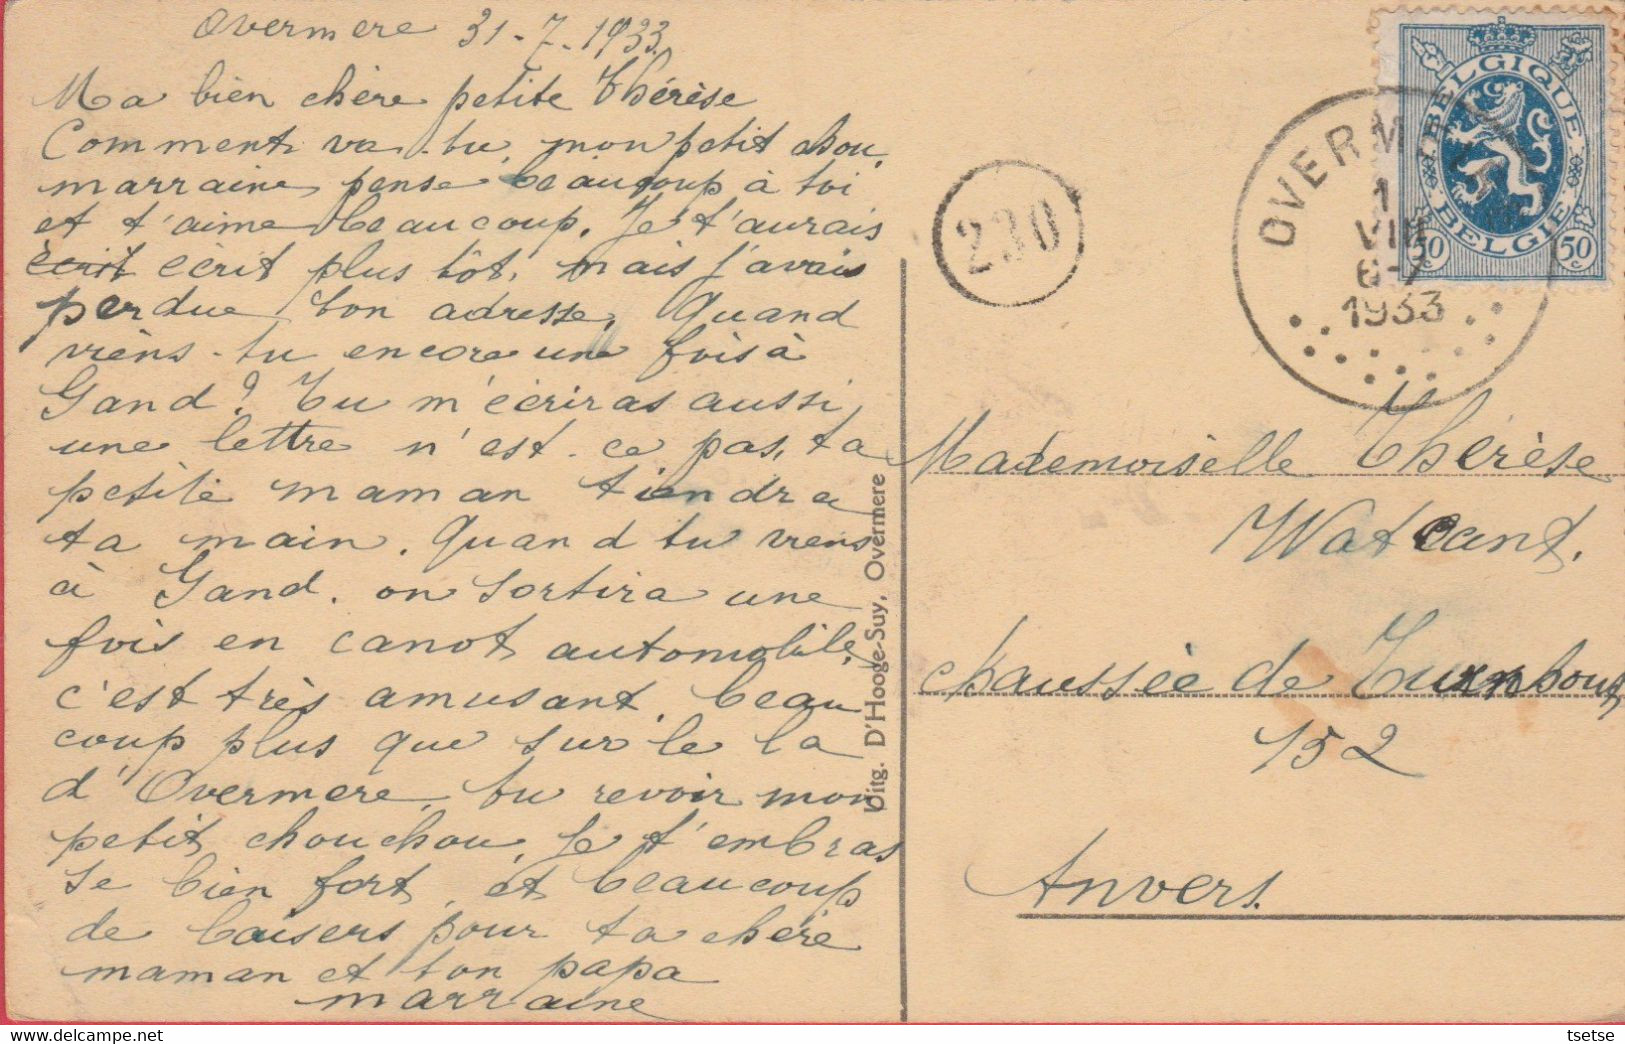 Overmere 31-7-1933.
Ma bien chère petite Thérèse
Comment va-tu, mon petit chou,
marraine pense beaucoup à toi
et t'aime beaucoup. Je t'aurais
écrit écrit plus tôt, mais j'avais
perdue ton adresse. Quand
viens-tu encore une fois à
Gand? Tu m'écriras aussi
une lettre n'est-ce pas, ta
petite maman tiendra
ta main. Quand tu viens
à Gand, on sortira une
fois en canot automobile,
c'est très amusant, beau
coup plus que sur le la
d'Overmere, tu revoir mon
petit chouchou, Je t'embras
se bien fort, et beaucoup
de baisers pour ta chère
maman et ton papa
marraine
Uitg. D'Hooge-Suy, Overmere
230
OVERM
1
VIII
6-7
1933
BELGIQUE
BELGIE
50c
50c
Mademoiselle Thérèse
Watcant.
chaussée de Turnhout,
152
Anvers.
tsetse